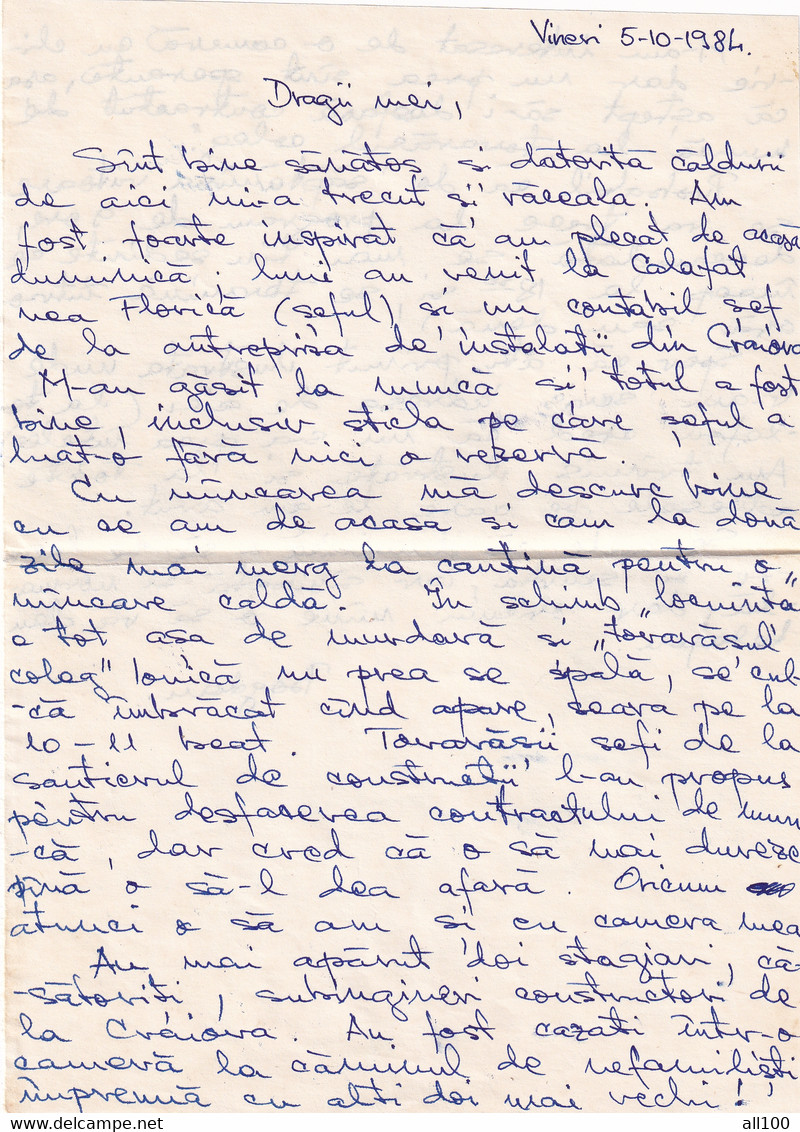 Vineri 5-10-1984.
Dragii mei,
Sînt bine sănătos și datorită căldurii
de aici mi-a trecut și răceala. Am
fost foarte inspirat că am plecat de acasă
duminică; luni au venit la Calafat
nea Florică (șeful) și un contabil șef
de la antrepriza de instalații din Craiova
M-au găsit la muncă și totul a fost
bine, inclusiv sticla pe care șeful a
luat-o fără nici o rezervă.
Cu mîncarea mă descurc bine
cu ce am de acasă și cam la două
zile mai merg la cantină pentru o
mîncare caldă. În schimb „locuința"
e tot așa de murdară și „tovarășul
coleg" Ionică nu prea se spală, se cul-
-că îmbrăcat cînd apare, seara pe la
10-11 beat. Tovarășii șefi de la
șantierul de construcții l-au propus
pentru desfacerea contractului de mun
-că, dar cred că o să mai dureze
pînă o să-l dea afară. Oricum
atunci o să am și eu camera mea
Au mai apărut doi stagiari, că-
-sătoriți, subingineri constructori de
la Craiova. Au fost cazați într-o
cameră la căminul de nefamiliști
împreună cu alți doi mai vechi!
all100